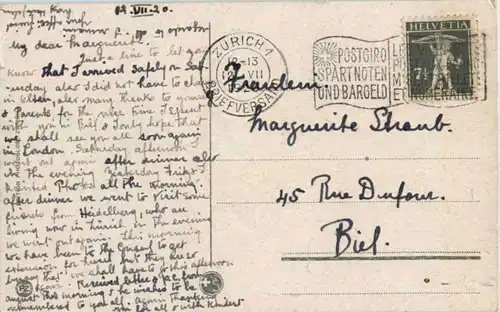 12.VII.20.
My dear Marguerite.
Just a line to let you
know that I arrived safely on Sat-
urday also I did not have to change
in Olten, also many thanks to you
& Parents for the nice time I spent
with you in Biel & I only hope that
we shall see you all soon again
in London. Saturday afternoon I
went out again after dinner also
in the evening. Yesterday Fritz &
I printed Photos all the morning.
After dinner we went to visit some
friends from Heidelberg, who are
living now in Zürich in the evening
we went out again. This morning
we have been to the Consul to get
extension for Fritz but they are so
busy that we shall have to this afternoon
again. Received letter & p.c. from
August this morning & he wishes to be
remembered to you all. again thanking
you for all & with kindest
ZÜRICH 1
12-13
VII
BRIEFVERSAND
POSTGIRO
SPART NOTEN
UND BARGELD
HELVETIA
7½
Fräulein
Marguerite Straub.
45 Rue Dufour.
Biel.